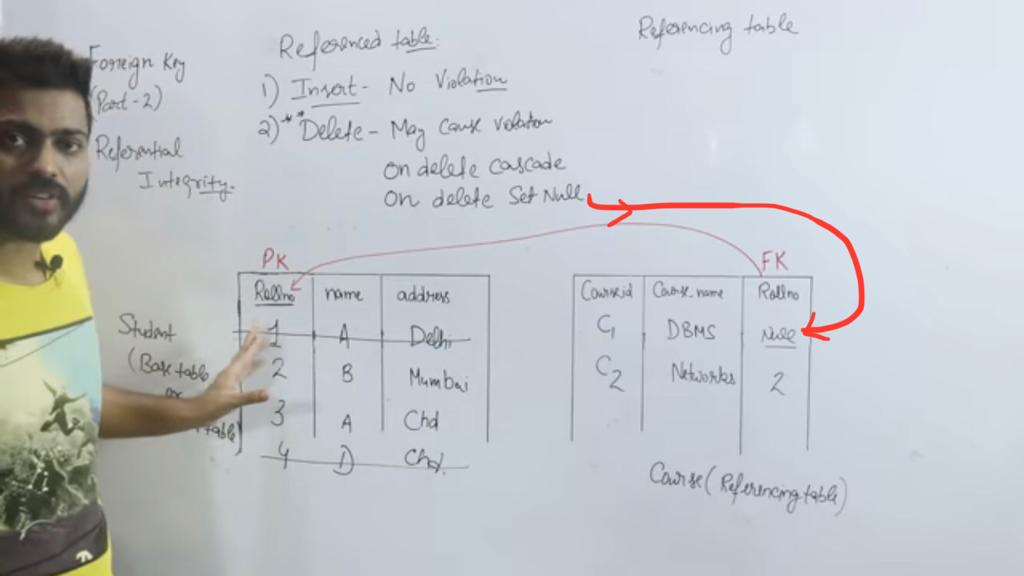 Foreign Key
(Part-2)
Referential
Integrity.
Referenced table.
1) Insert - No Violation
2) ** Delete - May Cause Violation
On delete Cascade
On delete Set Null
Referencing table
PK
Rollno name address
1 A Delhi
2 B Mumbai
3 A Chd
4 D Chd.
Student
(Base table
or
table)
FK
Courseid Course name Rollno
C1 DBMS Null
C2 Networks 2
Course (Referencing table)